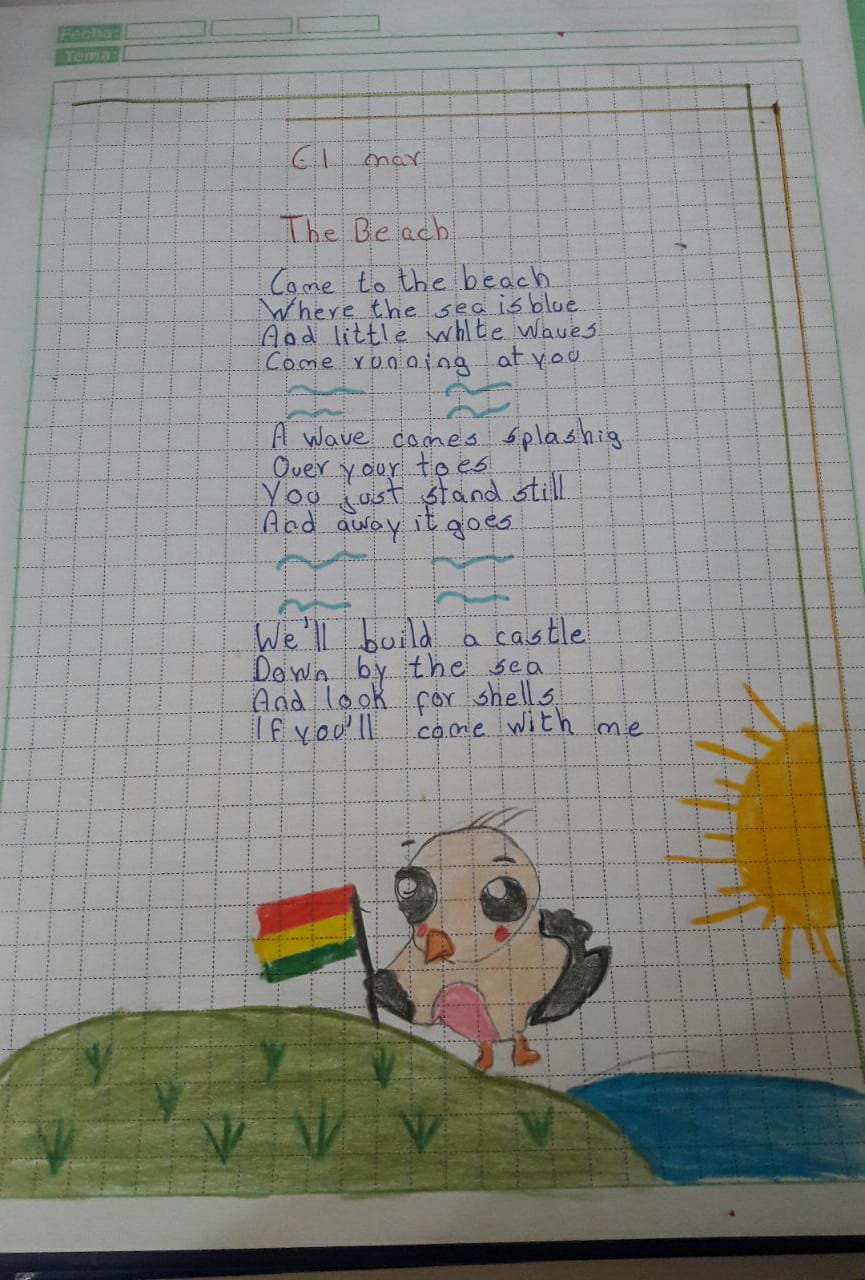 Fecha:
Tema:
El mar
The Beach
Come to the beach
Where the sea is blue
And little white waves
Come running at you
A wave comes splashig
Over your toes
You just stand still
And away it goes
We'll build a castle
Down by the sea
And look for shells
If you'll come with me